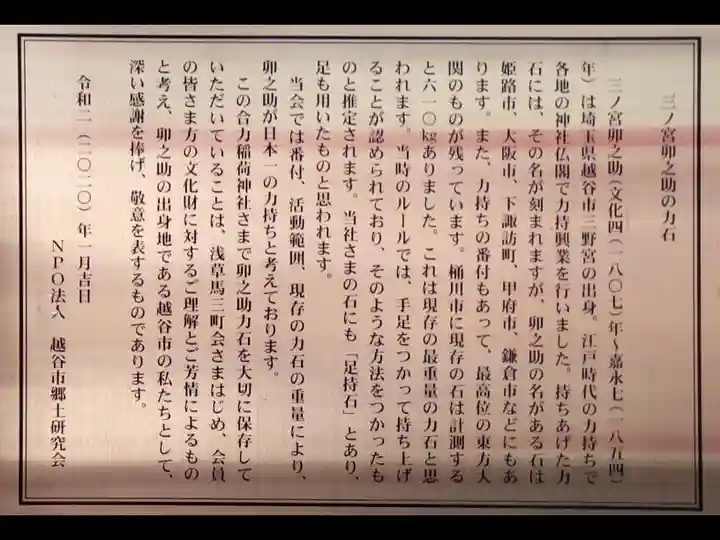 三ノ宮卯之助の力石
三ノ宮卯之助（文化四（一八〇七）年～嘉永七（一八五四）
年）は埼玉県越谷市三野宮の出身。江戸時代の力持ちで
各地の神社仏閣で力持興業を行いました。持ちあげた力
石には、その名が刻まれますが、卯之助の名がある石は
姫路市、大阪市、下諏訪町、甲府市、鎌倉市などにもあ
ります。また、力持ちの番付もあって、最高位の東方大
関のものが残っています。桶川市に現存の石は計測する
と六一〇㎏ありました。これは現存の最重量の力石と思
われます。当時のルールでは、手足をつかって持ち上げ
ることが認められており、そのような方法をつかったも
のと推定されます。当社さまの石にも「足持石」とあり、
足も用いたものと思われます。
当会では番付、活動範囲、現存の力石の重量により、
卯之助が日本一の力持ちと考えております。
この合力稲荷神社さまで卯之助力石を大切に保存して
いただいていることは、浅草馬三町会さまはじめ、会員
の皆さま方の文化財に対するご理解とご芳情によるもの
と考え、卯之助の出身地である越谷市の私たちとして、
深い感謝を捧げ、敬意を表するものであります。
令和二（二〇二〇）年一月吉日
ＮＰＯ法人　越谷市郷土研究会